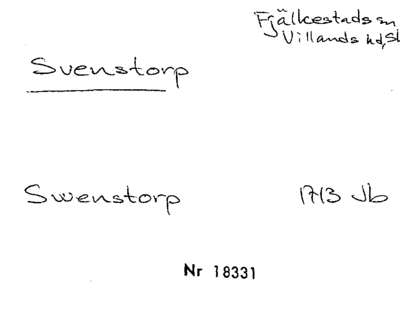 Fjälkestads sn
Villands hd, Sk
Svenstorp
Swenstorp 1713 Jb
Nr 18331